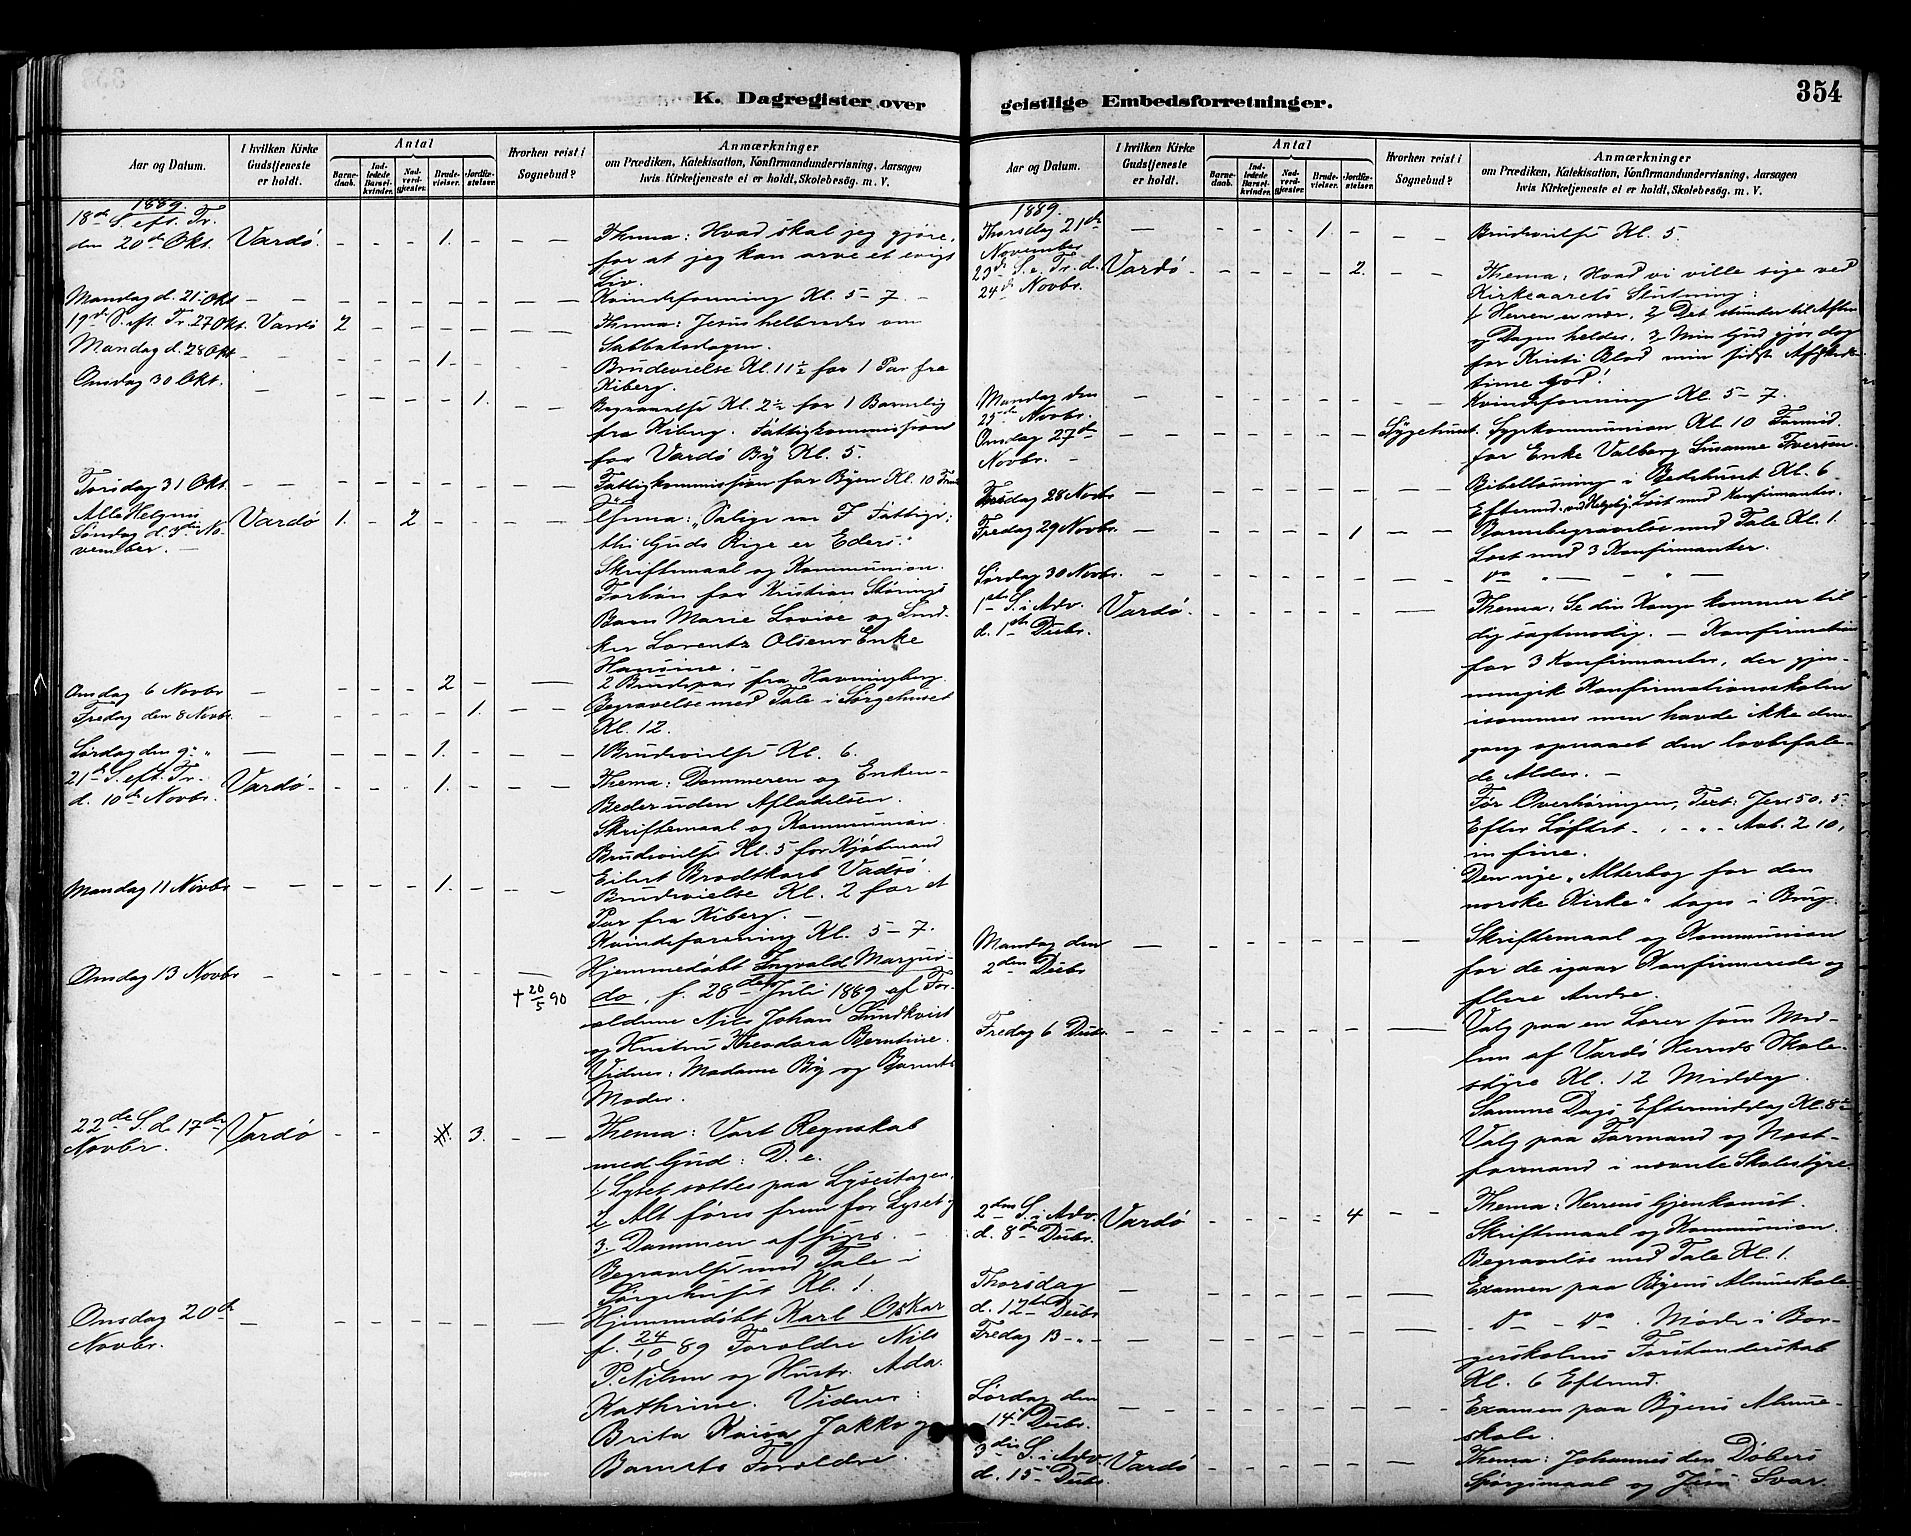 K. Dagregister over
geistlige Embedsforretninger.
354
Aar og Datum.
I hvilken Kirke Gudstjeneste er holdt.
Antal
Barnedaab.
Indledede Barselkvinder.
Nadverdgjester.
Brudevielser.
Jordfæstelser.
Hvorhen reist i Sognebud?
Anmærkninger
om Prædiken, Katekisation, Konfirmandundervisning, Aarsagen
hvis Kirketjeneste ei er holdt, Skolebesøg. m. V.
1889.
18de S. eft. Tr.
den 20de Okt. Vardø. - - - 1. - - - Thema: Hvad skal jeg gjøre,
for at jeg kan arve et evigt
Liv.
Mandag d. 21 Okt - - Kvindeforening Kl. 5-7. -
19de S. eft. Tr. 27 Okt. Vardø 2 - - - - - - Thema: Jesus helbreder om
Sabbatsdagen.
Mandag d. 28 Okt. - - - 1. - Brudevielse Kl. 11½ for 1 Par fra
Kiberg.
Onsdag 30 Okt. - - - - - 1. - - Begravelse Kl. 2½ for 1 Barnelig
fra Kiberg. Fattigkommission
for Vardø By Kl. 5.
Torsdag 31 Okt. - - Fattigkommission for Byen Kl. 10 Form
Alle Helgens
Søndag d. 3die No-
vember. - Vardø 1. - 2 - - Thema: "Salige ere I Fattige;
thi Guds Rige er Eders."
Skriftemaal og Kommunion.
Forbøn for Kristian Størings
Barn Marie Lovise og
Lorentz Olsens Enke
Hansine. -
Onsdag 6 Novbr - - - - 2 - - 2 Brudepar fra Havningberg.
Fredag den 8 Novbr. - - - - - 1. - - Begravelse med Tale i Sørgehuset
Kl. 12.
Lørdag den 9de " - - - - 1. - - 1 Brudevielse Kl. 6.
21de S. eft. Tr.
d. 10de Novbr. Vardø - - - - 1. - - Thema: Dommeren og Enken -
Beder uden Afladelsen.
Skriftemaal og Kommunion.
Brudevielse Kl. 5 for Kjøbmand
Eilert Brodtkorb Vadsø.
Mandag 11 Novbr - - - - 1. - - Brudevielse Kl. 2 for et
Par fra Kiberg. -
Kvindeforening Kl. 5-7.
Onsdag 13 Novbr - - Hjemmedøbt Ingvald
† 20/5 90 f. 28de Juli 1889 af For-
ældrene Nils Johan Sundkvist
og Hustru Theodora Berntine.
Vidner: Madame By og Barnets
Moder.
22de S. d. 17de
Novbr. Vardø - - 3. - - Thema: Vort Regnskab
med Gud: D. e.
1. Lytet sættes paa Lysestagen.
2. Alt føres frem for Lyset og
3. Dommen afsiges. -
Begravelse med Tale i
Sørgehuset Kl. 1.
Onsdag 20de
Novbr. - - Hjemmedøbt Karl Oskar
f. 24/10 89 Forældre Nils
P. Nilsen og Hustr. Ada
Kathrine. Vidner:
Brita Kaisa Jakko og
Barnets Forældre.
Aar og Datum.
I hvilken Kirke Gudstjeneste er holdt.
Antal
Barnedaab.
Indledede Barselkvinder.
Nadverdgjester.
Brudevielser.
Jordfæstelser.
Hvorhen reist i Sognebud?
Anmærkninger
om Prædiken, Katekisation, Konfirmandundervisning, Aarsagen
hvis Kirketjeneste ei er holdt, Skolebesøg. m. V.
1889.
Thorsdag 21de
November - - - - 1. - - - Brudevielse Kl. 5.
23de S. e. Tr. d.
24de Novbr. Vardø - - - - 2. - - Thema: Hvad vi ville sige ved
Kirkeaarets Slutning:
1/ Herren er nær, 2/ Det stunder til Aften
og Dagen heldes, 3/ Min Gud gjør dog
for Kristi Blod min sidste Afskeds-
time god!
Mandag den
25de Novbr. - - Kvindeforening Kl. 5-7.
Onsdag 27de
Novbr. - Sygehuset. Sygekommunion Kl. 10 Formid.
for Enke Valberg Susanne Iversen.
Bibellæsning i Bedehuset Kl. 6
Torsdag 28 Novbr - - Eftermd. Læst med Konfirmanter.
Fredag 29 Novbr. - - - - - 1 - - Barnebegravelse med Tale Kl. 1.
Læst med 3 Konfirmanter.
Lørdag 30 Novbr. - - Do " - " -
1ste S. i Adv.
d. 1ste Decbr. Vardø - - - - - Thema: Se din Konge kommer til
dig sagtmodig. - Konfirmation
for 3 Konfirmanter, der gjen-
nemgik Konfirmationsskolen
isommer men havde ikke den-
gang opnaaet den lovbefale-
de Alder. -
Før Overhøringen, Text: Jer. 50. 5.
Efter Løftet - . - " - Aab. 2 10,
in fine.
Den nye "Alterbog for den
norske Kirke" tages i Brug.
Mandag den
2den Decbr - - Skriftemaal og Kommunion
for de igaar Konfirmerede og
flere Andre.
Fredag 6 Decbr. - - Valg paa en Lærer som Med-
lem af Vardø Herreds Skole-
styre Kl. 12 Middag.
Samme Dags Eftermiddag Kl. 8
Valg paa Formand og Næst-
formand i nævnte Skolestyre.
2den S. i Adv.
d. 8de Decbr. Vardø - - - - 4 - - Thema: Herrens Gjenkomst.
Skriftemaal og Kommunion.
Begravelse med Tale Kl. 1.
Thorsdag
d. 12te Decbr - - Examen paa Byens Almueskole.
Fredag 13 - " - - - Do - Do. Møde i Bor-
gerskolens Forstanderskab
Kl. 6 Eftermd.
Lørdag den
14de Decbr. - - Examen paa Byens Almue-
skole.
3die S. i Adv.
d. 15 Decbr. Vardø - - Thema: Johannes den Døbers
Spørgsmaal og Jesu Svar.